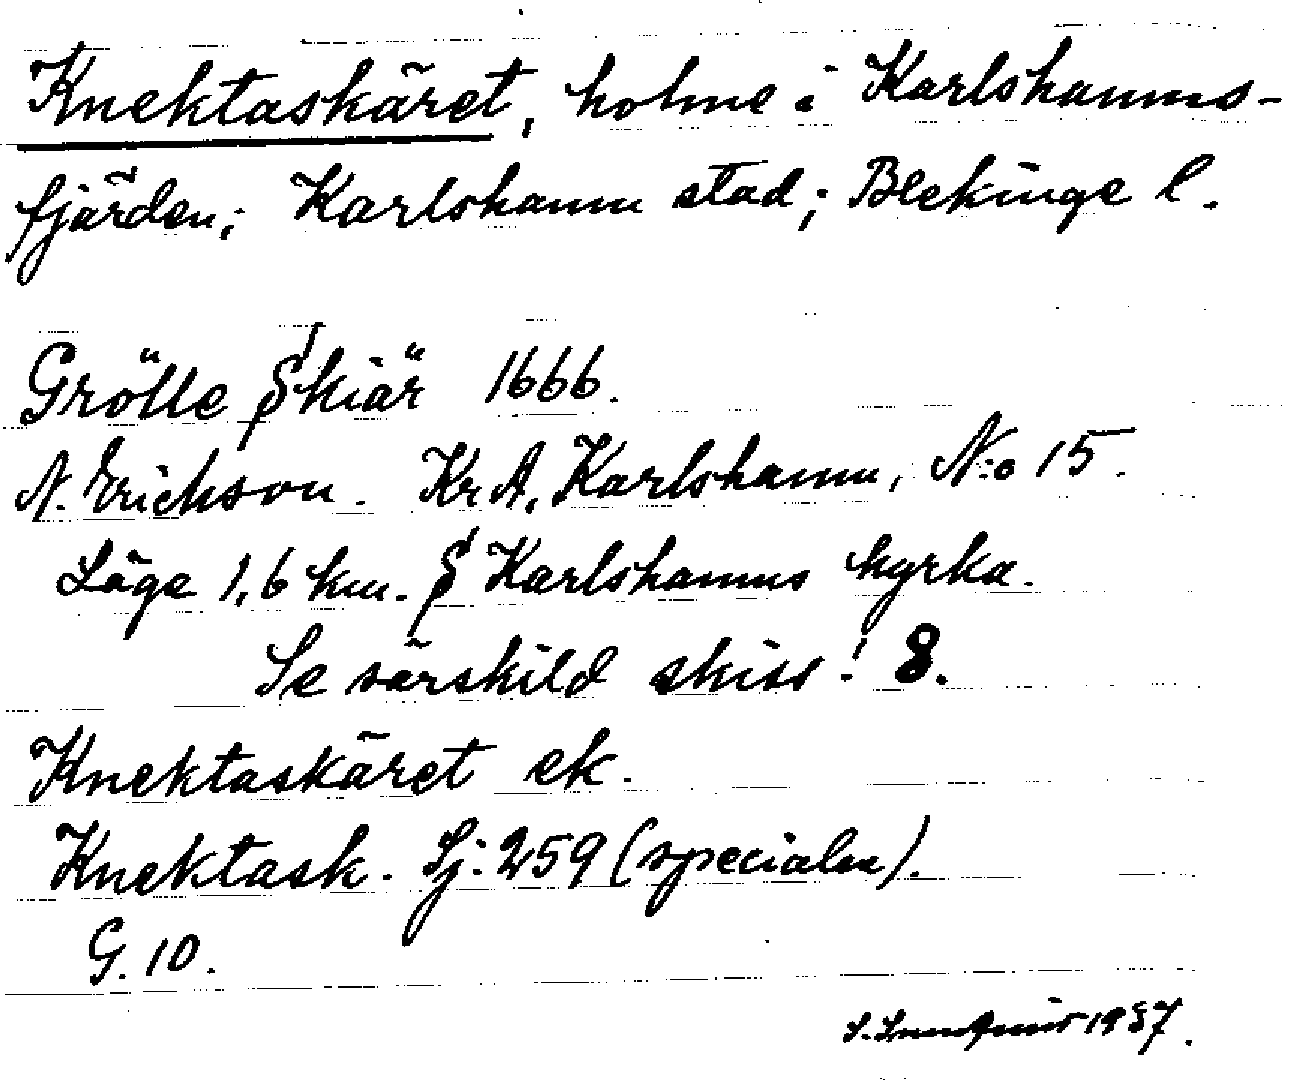 Knektaskäret, holme i Karlshamns-
fjärden; Karlshamn stad; Blekinge l.
Grölle Skiär 1666.
N. Erichson. KrA, Karlshamn, N:o 15.
Läge 1,6 km. S Karlshamns kyrka.
Se särskild skiss! 8.
Knektaskäret ek.
Knektask. Sj: 259 (specialn).
G. 10.
1937.